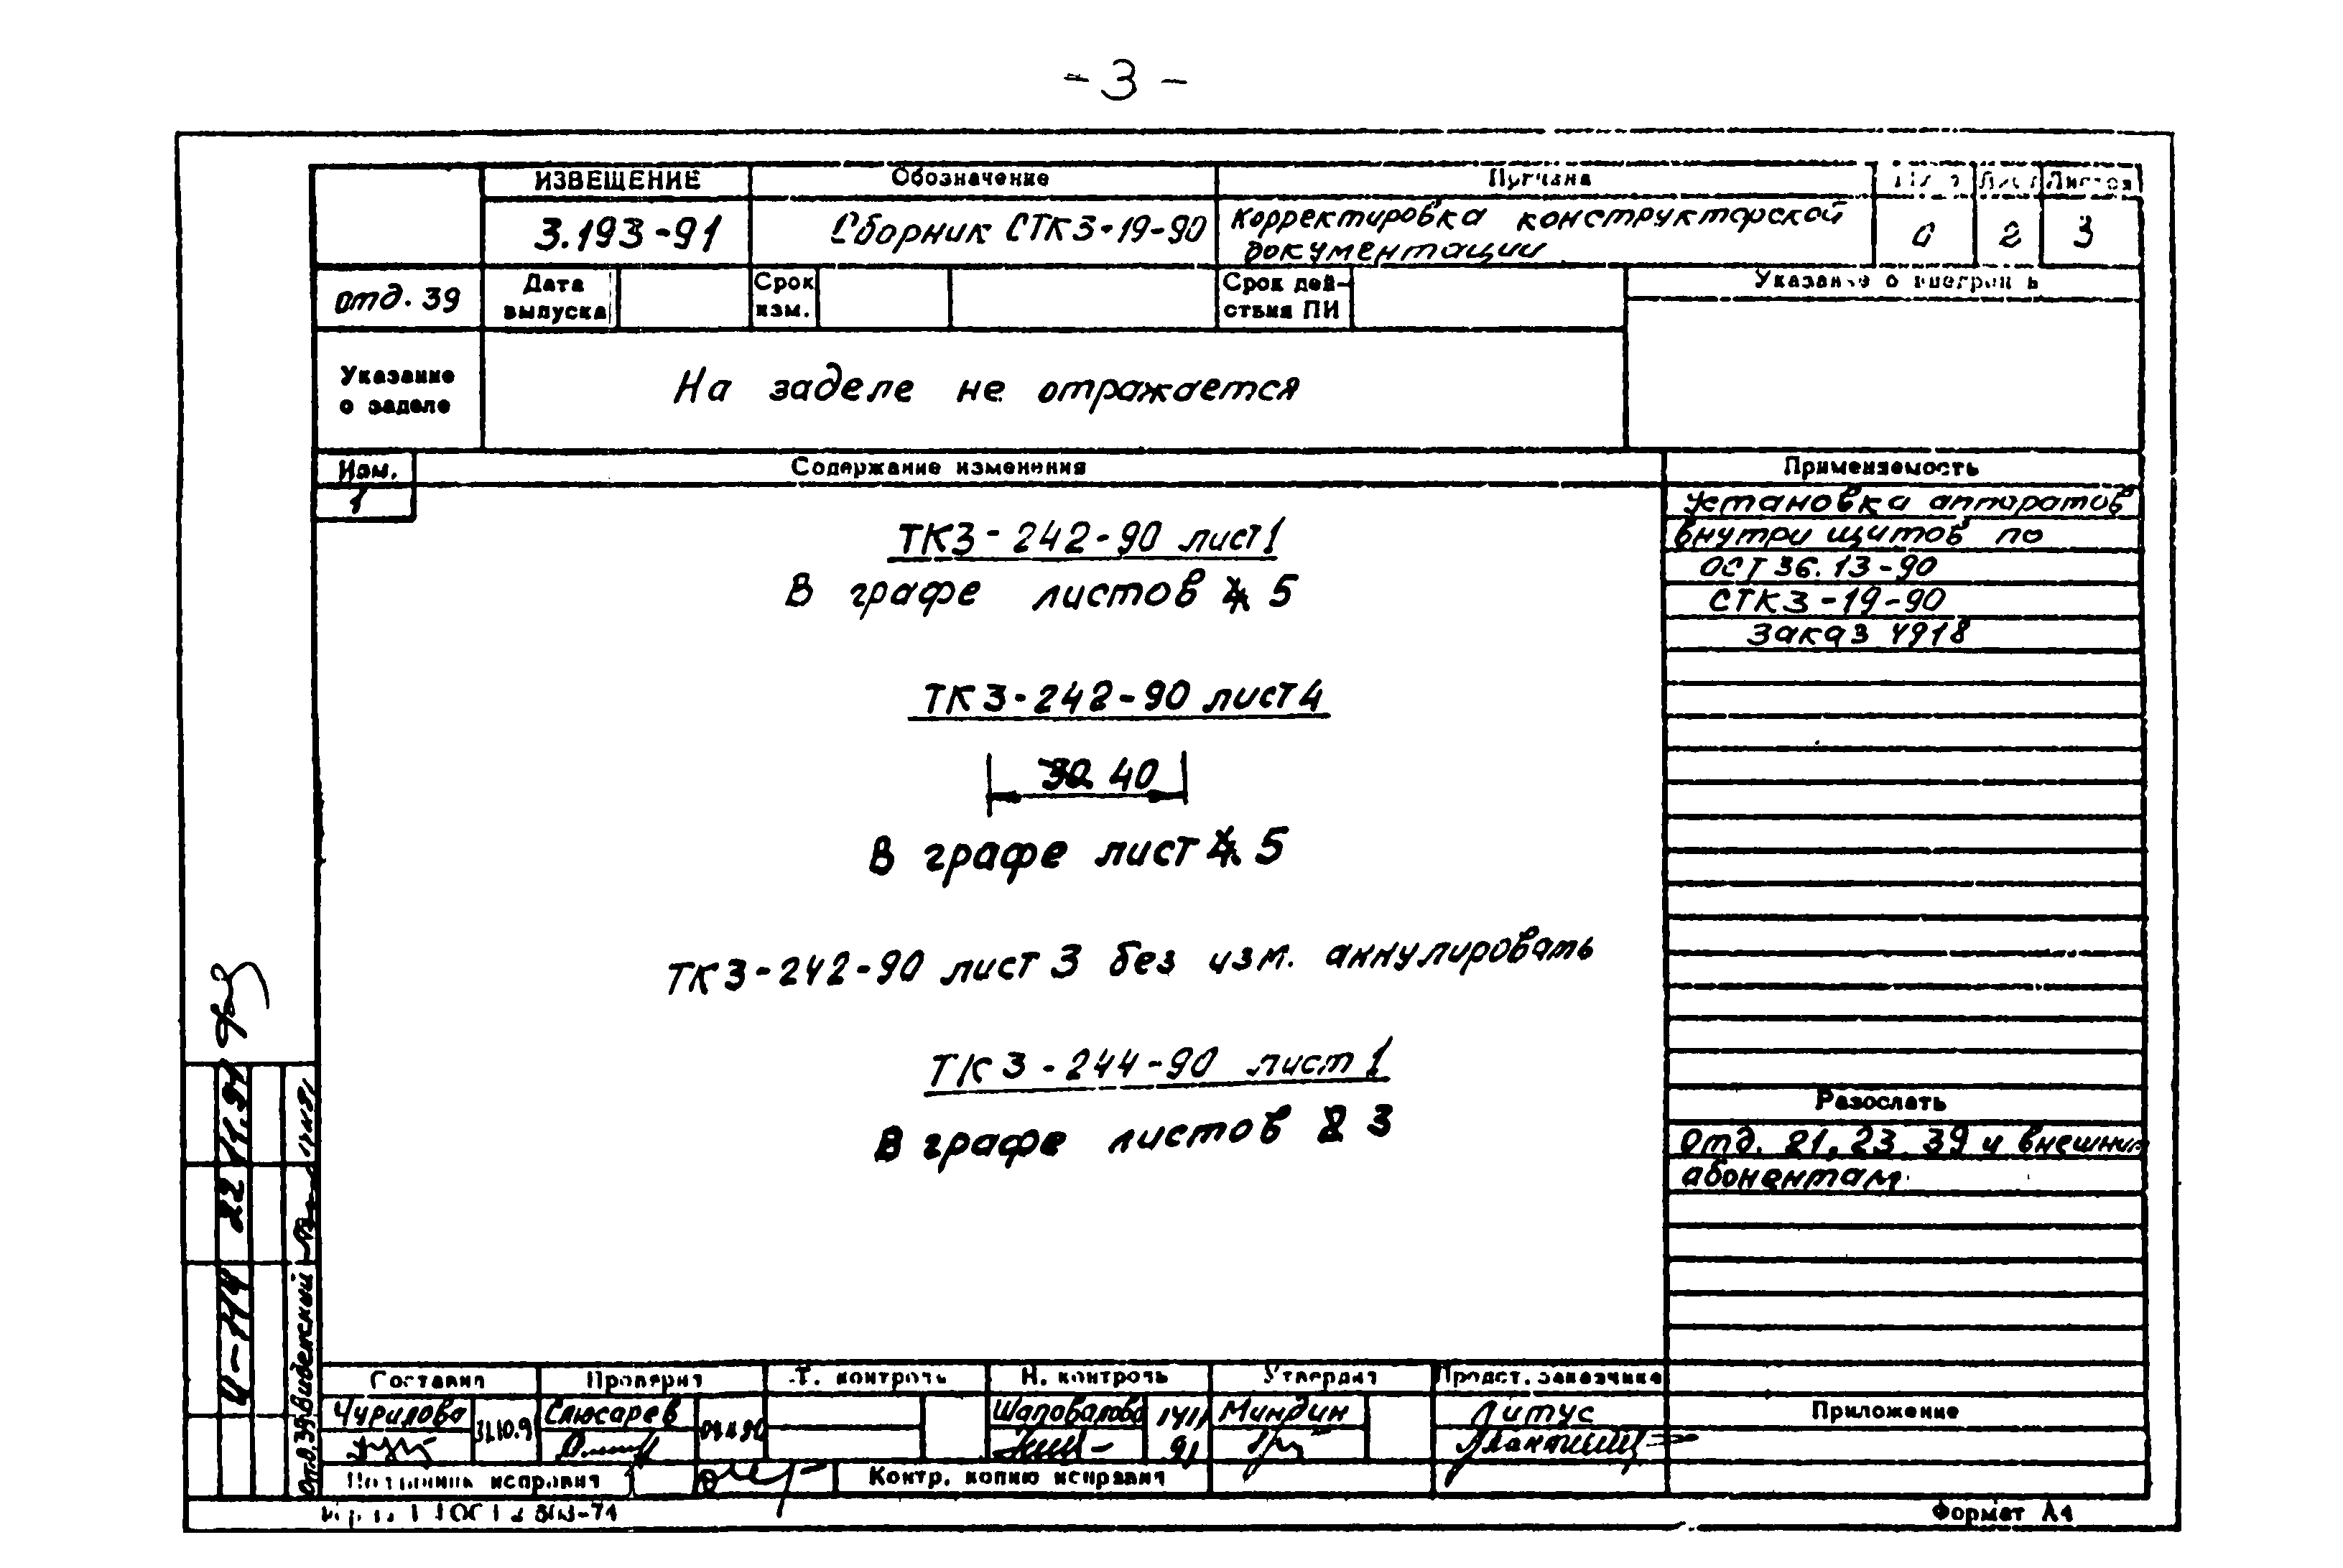 - 3 -
ИЗВЕЩЕНИЕ Обозначение Причина Лист Листов
3.193-91 Сборник СТК3-19-90 Корректировка конструкторской 0 2 3
документации
отд. 39 Дата Срок Срок дей-
выпуска изм. ствия ПИ
Указание о
Указание На заделе не отражается
о заделе
Изм. Содержание изменения Применяемость
1 Установка аппаратов
внутри щитов по
ОСТ 36.13-90
СТК3-19-90
Заказ 4918
ТК3-242-90 лист 1
В графе листов 4 5
ТК3-242-90 лист 4
30 40
В графе лист 4 5
ТК3-242-90 лист 3 без изм. аннулировать
ТК3-244-90 лист 1
В графе листов 2 3
Разослать
отд. 21, 23, 39 и внешним
абонентам
И-114 22 11.91
Отд. 39 Виденский
Составил Проверил Т. контроль Н. контроль Утвердил Предст. заказчика
Чурилова 31.10.91 Слюсарев Шаповалова Миндин Литус Приложение
91
Подлинник исправил Контр. копию исправил
Формат А4